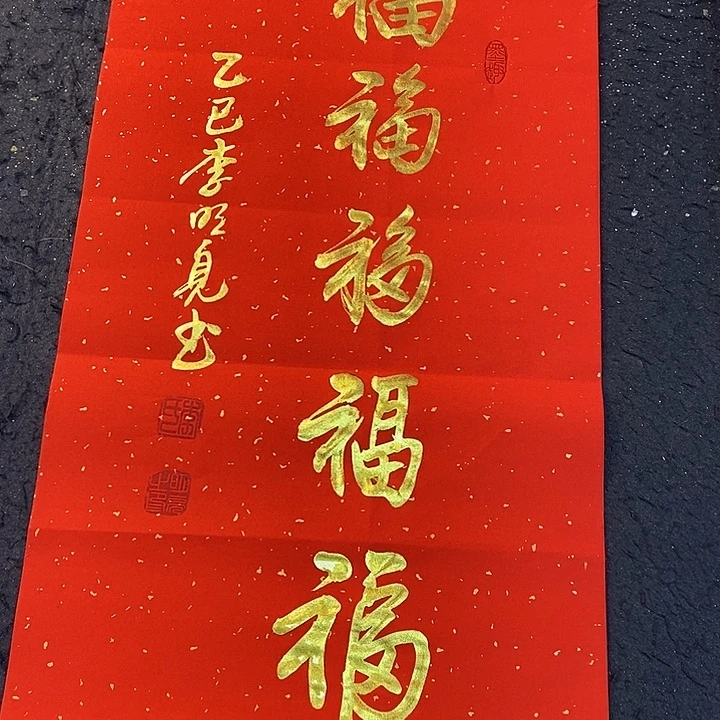 福福福福福
乙巳李明見书